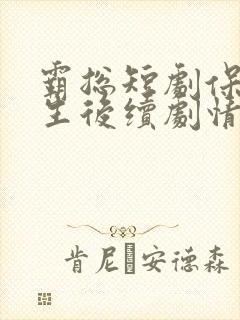 霸總短劇保
生後續劇情
肯尼 安德森